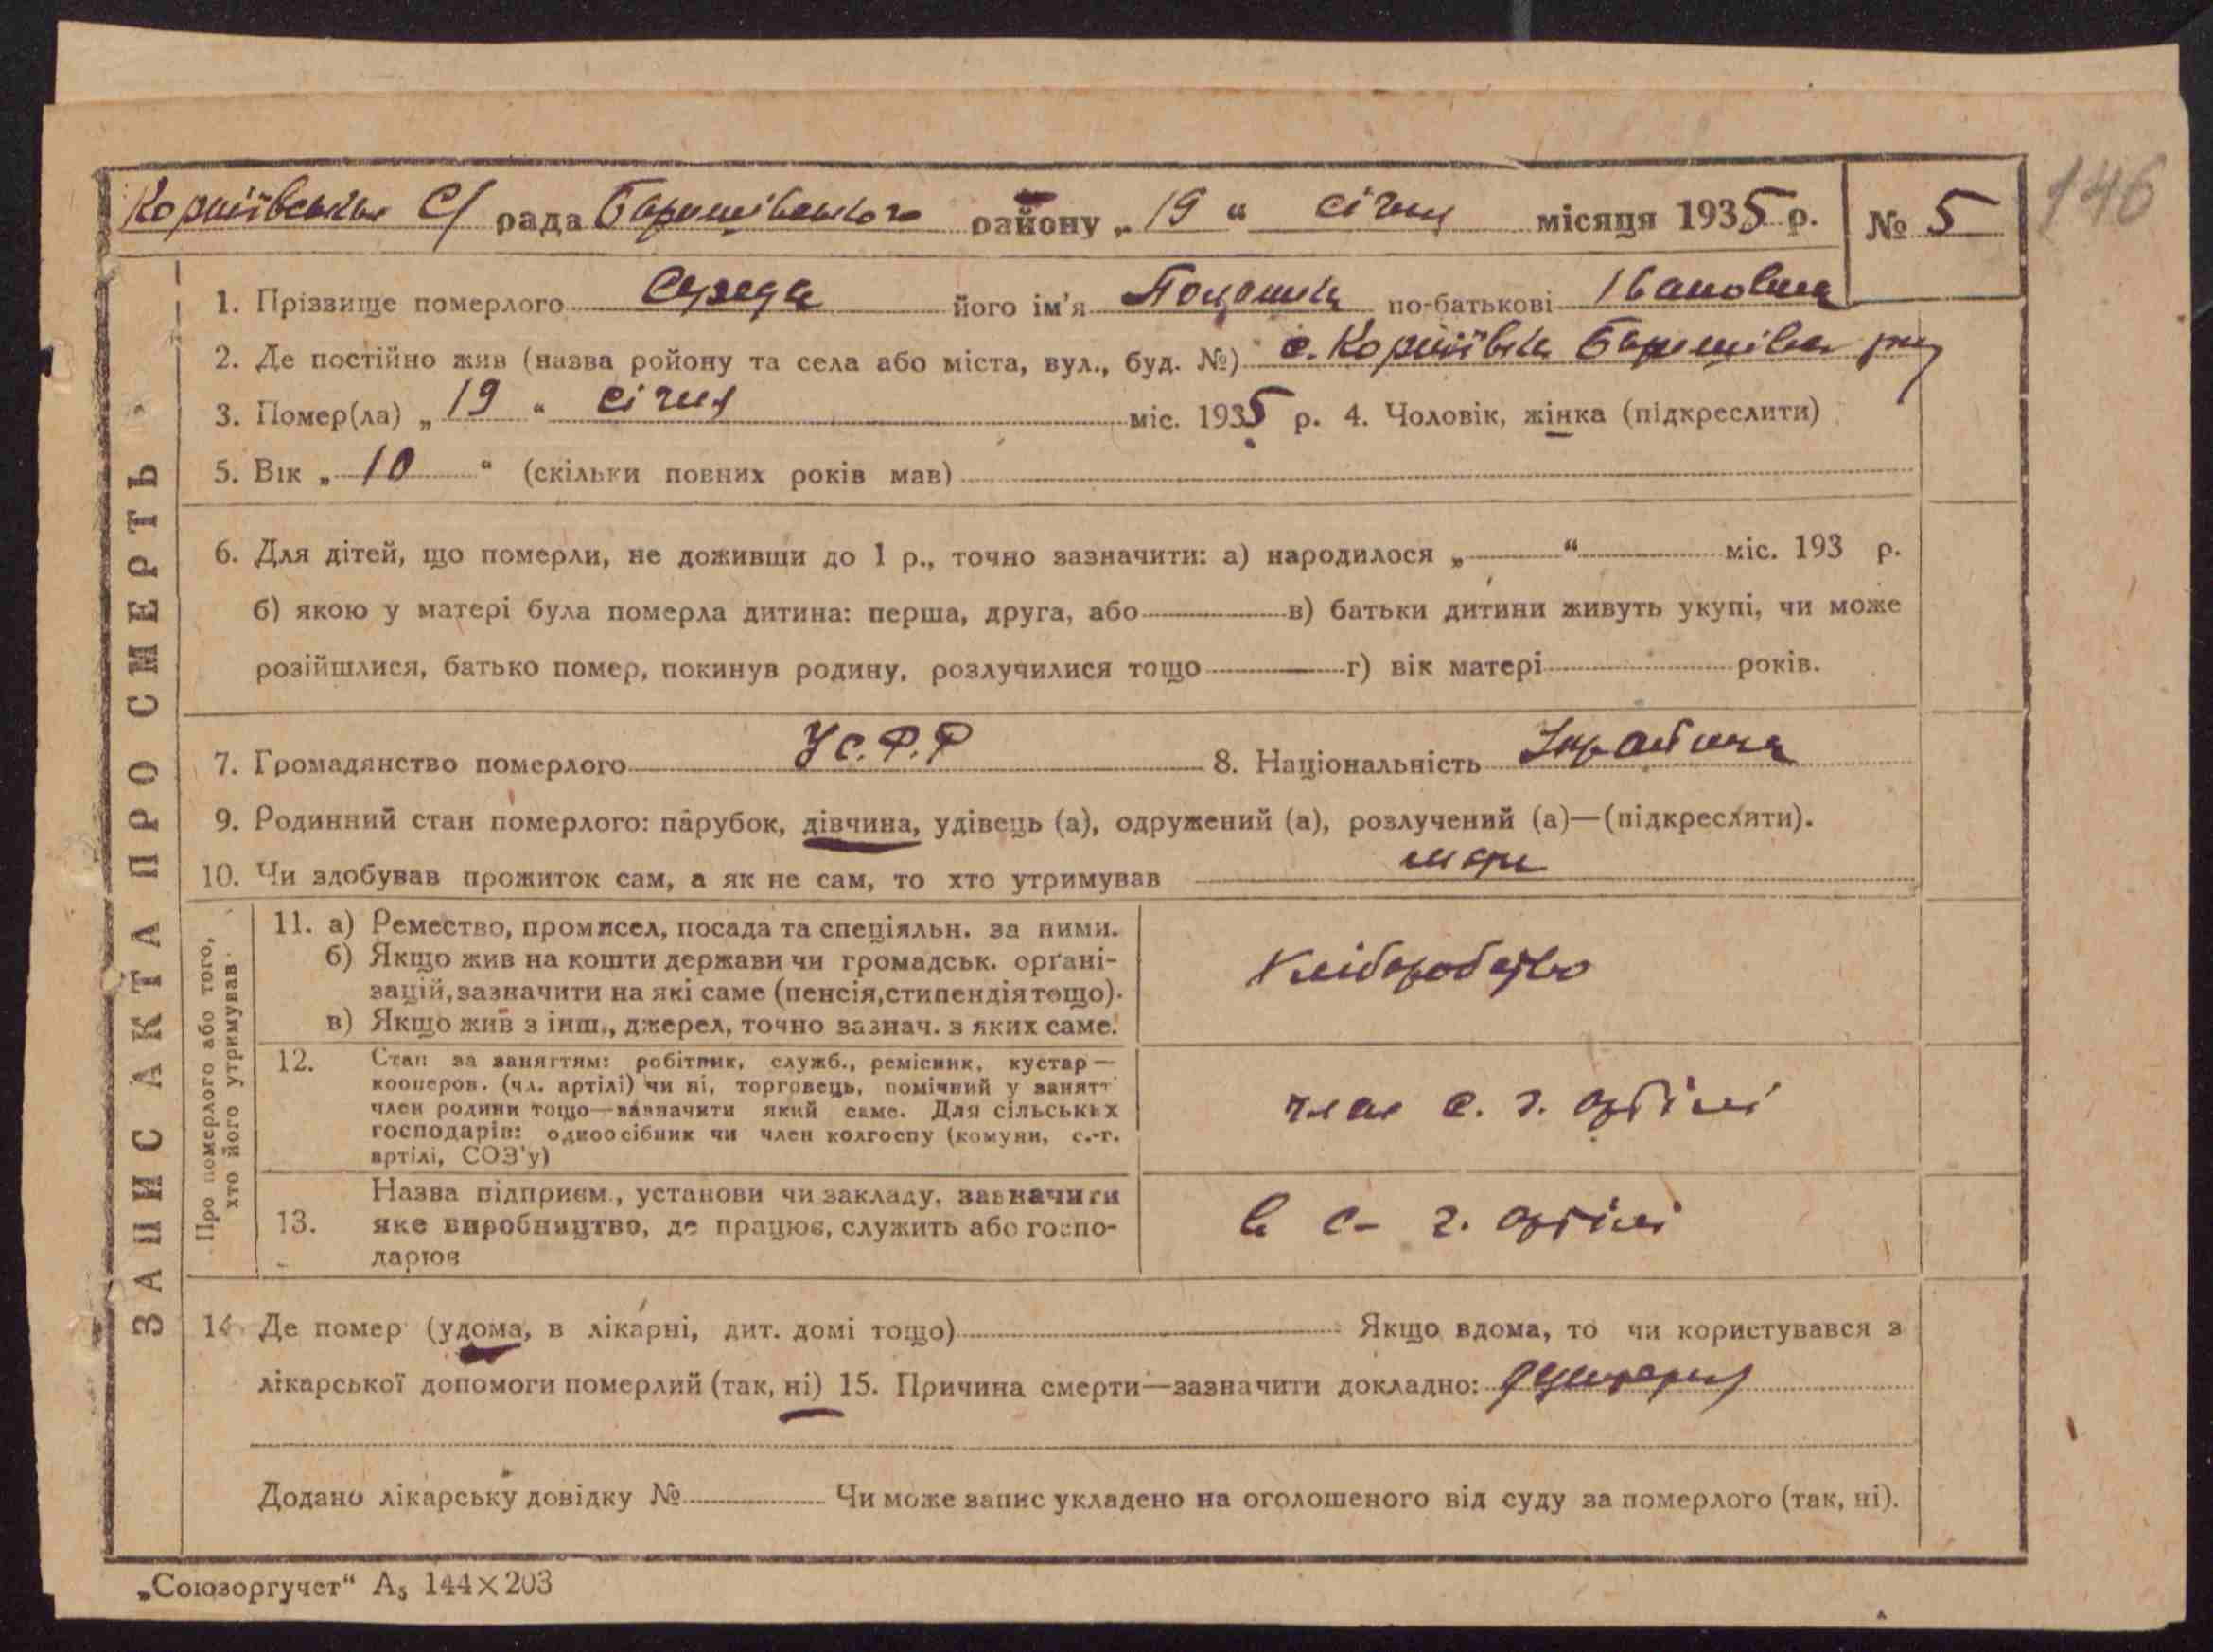 Корніївська С/ рада Баришівського району „19“ січня місяця 1935 р. № 5
146
ЗАПИС АКТА ПРО СМЕРТЬ
1. Прізвище померлого Середа його ім'я по-батькові Івановна
2. Де постійно жив (назва ройону та села або міста, вул., буд. №) с. Корніївка Баришівсь р-ну
3. Помер(ла) „19“ січня міс. 1935 р. 4. Чоловік, жінка (підкреслити)
5. Вік „10“ (скільки повних років мав)
6. Для дітей, що померли, не доживши до 1 р., точно зазначити: а) народилося „ “ міс. 193 р.
б) якою у матері була померла дитина: перша, друга, або в) батьки дитини живуть укупі, чи може
розійшлися, батько помер, покинув родину, розлучилися тощо г) вік матері років.
7. Громадянство померлого УС.Р.Р 8. Національність Україина
9. Родинний стан померлого: парубок, дівчина, удівець (а), одружений (а), розлучений (а)—(підкреслити).
10. Чи здобував прожиток сам, а як не сам, то хто утримував мати
Про померлого або того,
хто його утримував
11. а) Ремество, промисел, посада та спеціяльн. за ними.
б) Якщо жив на кошти держави чи громадськ. орґані-
зацій, зазначити на які саме (пенсія, стипендія тощо).
в) Якщо жив з інш., джерел, точно зазнач. з яких саме.
Хліборобство
12. Стан за заняттям: робітник, служб., ремісник, кустар—
кооперов. (чл. артілі) чи ні, торговець, помічний у занятт
член родини тощо—зазначити який саме. Для сільських
господарів: одноосібник чи член колгоспу (комуни, с.-г.
артілі, СОЗ'у)
член с. г. артілі
13. Назва підприєм., установи чи закладу, зазначити
яке виробництво, де працює, служить або госпо-
дарює
в с- г. артілі
14 Де помер (удома, в лікарні, дит. домі тощо) Якщо вдома, то чи користувався з
лікарської допомоги померлий (так, ні) 15. Причина смерти—зазначити докладно:
Додано лікарську довідку № Чи може запис укладено на оголошеного від суду за померлого (так, ні).
„Союзоргучет“ А5 144×203